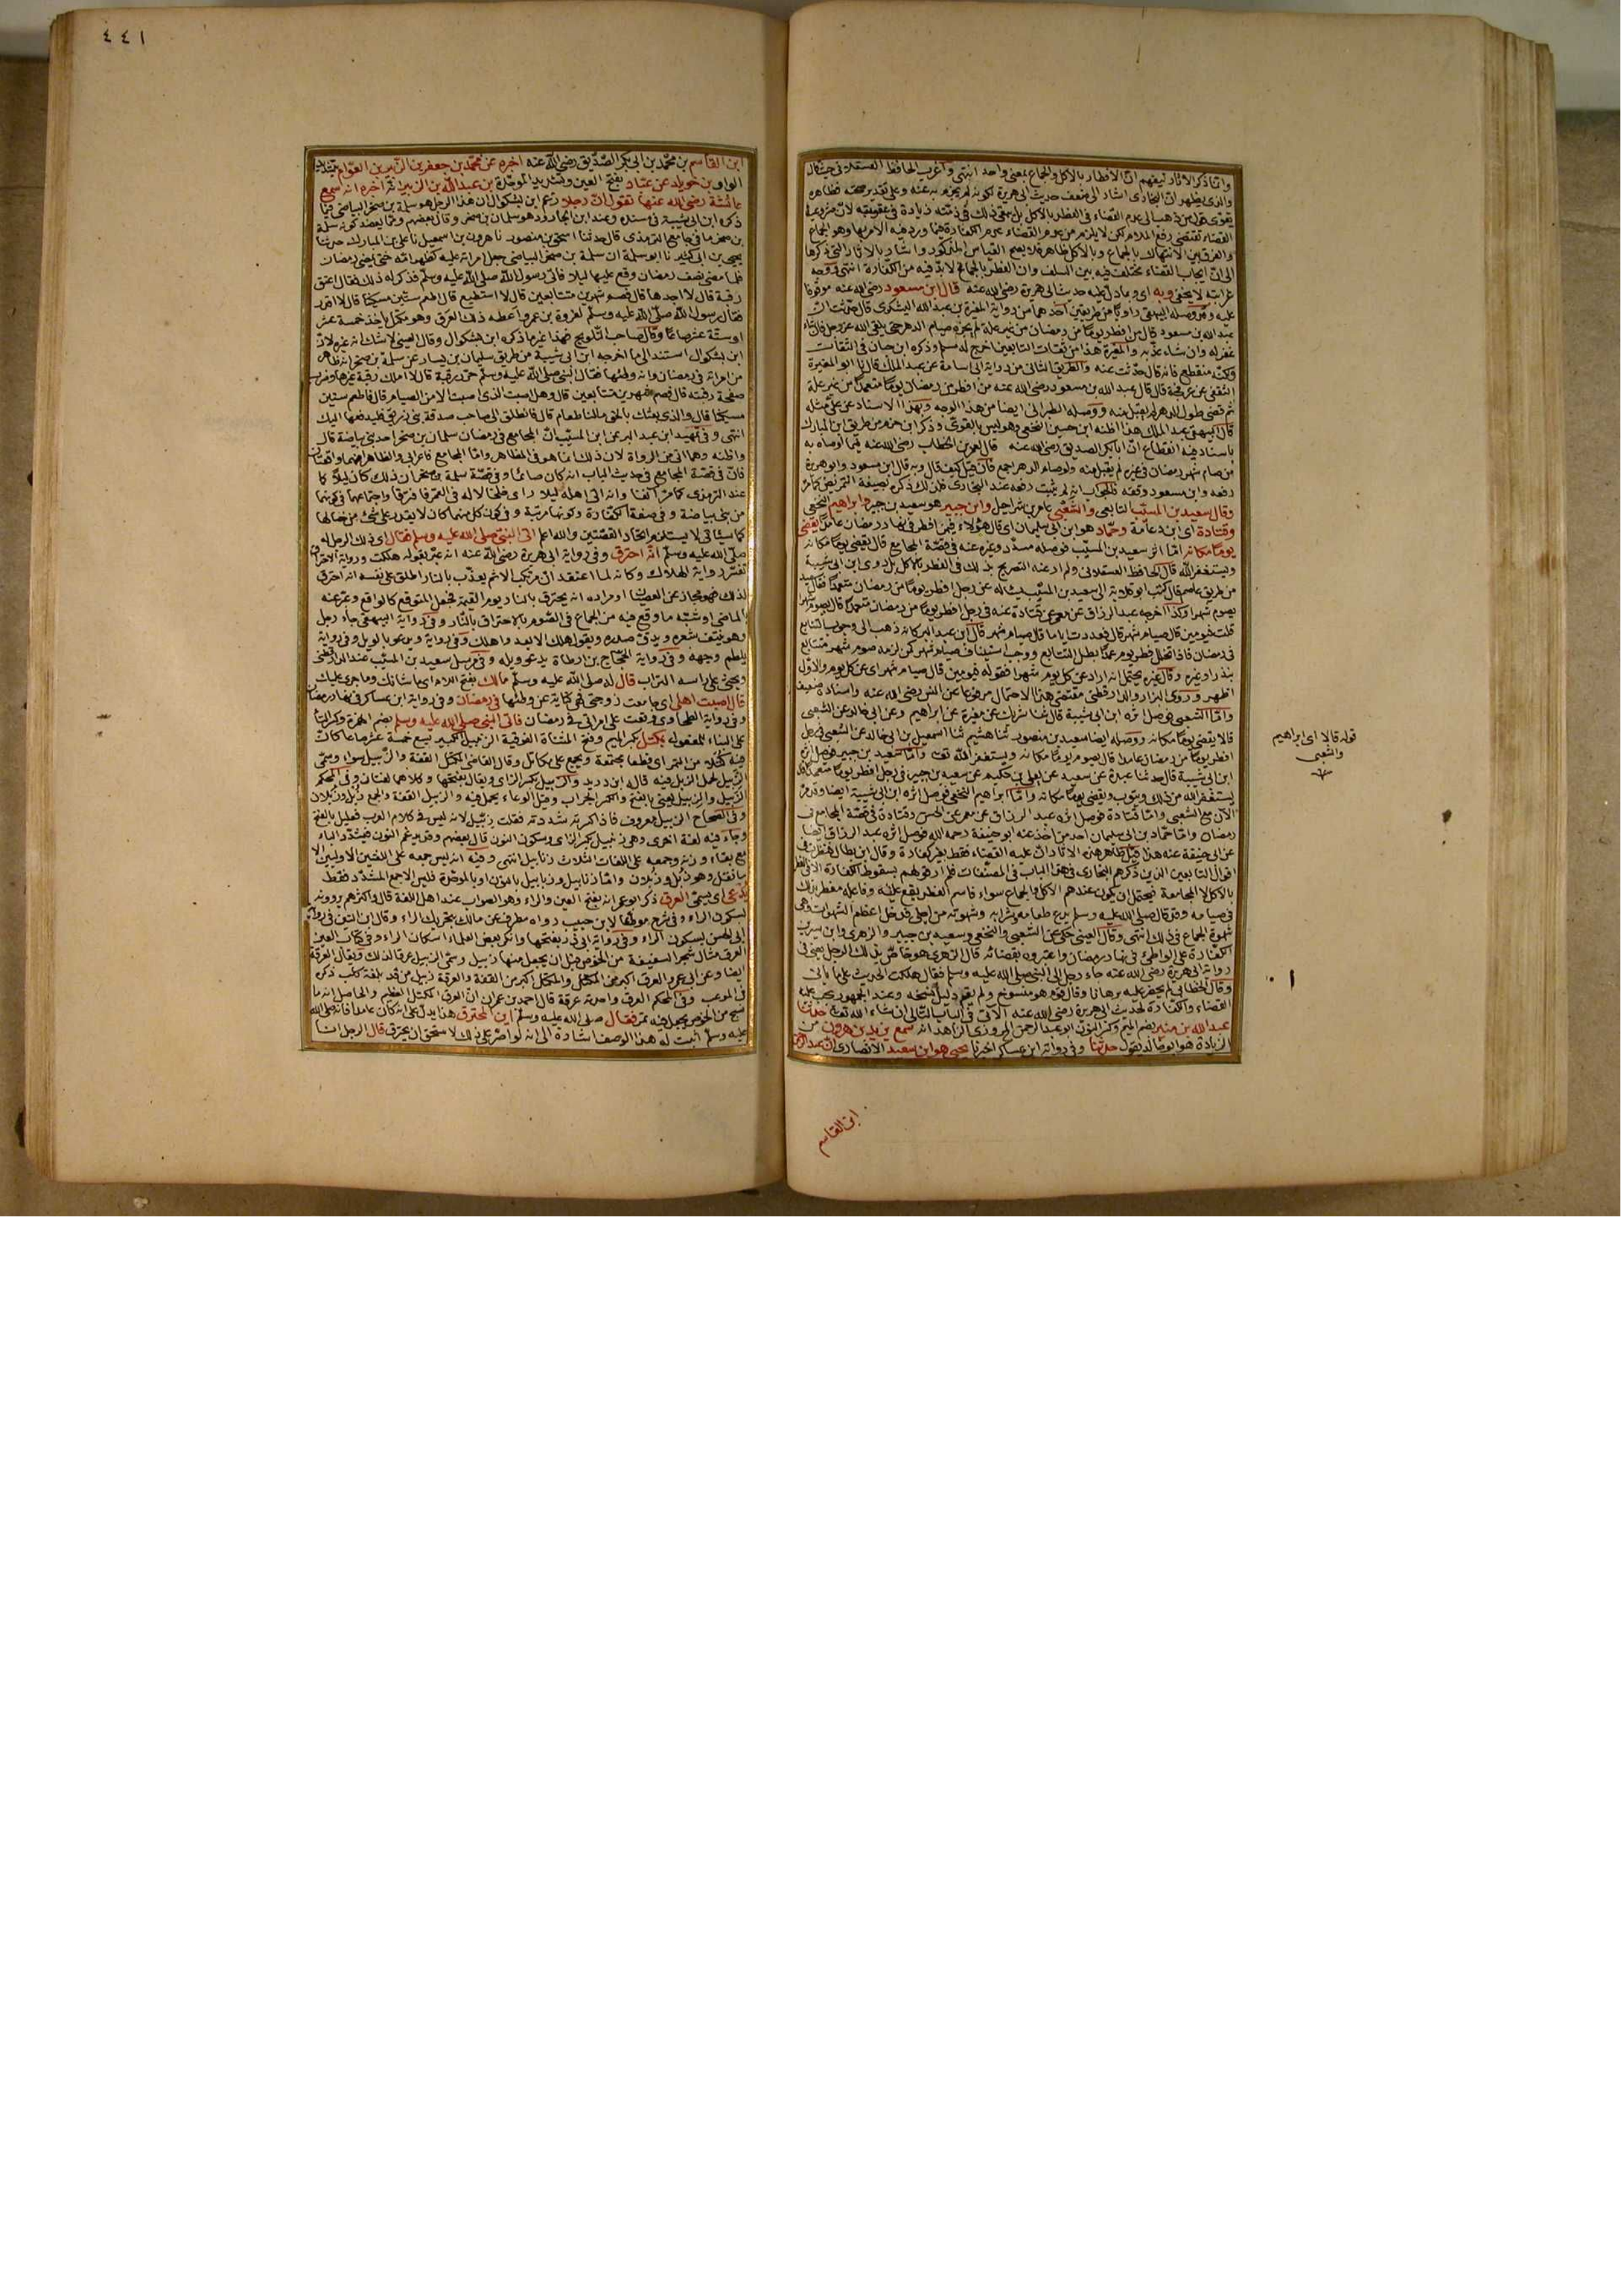 وانما ذكر الآثار ليفهم انّ الافطار بالاكل والجماع بمعنى واحد انتهى واغرب الحافظ العسقلانى حيث قال
والذى يظهر انّ البخارى اشار الى ضعف حديث ابى هريرة لكونه لم يجزم به عنه وعلى تقدير صحته فظاهره
يقوّى قول من ذهب الى عدم القضاء فى الفطر بالاكل بل يبقى ذلك فى ذمّته زيادة فى عقوبته لانّ مشروعية
القضاء تقتضى رفع الملام لكن لا يلزم من عدم القضاء عدم الكفارة فيما ورد فيه الامر بها وهو الجماع
والفرق بين الانتهاك بالجماع وبالاكل ظاهر فلا يصح القياس المذكور واشار بالآثار التى ذكرها
الى انّ ايجاب القضاء مختلف فيه بين السلف وان الفطر بالجماع لا بدّ فيه من الكفارة انتهى ووجه
غرابته لا يخفى وبه اى وبما دلّ عليه حديث ابى هريرة رضى الله عنه قال ابن مسعود رضى الله عنه موقوفا
عليه وقد وصله البيهقى راويا من طريقين احدهما من رواية المغيرة بن عبد الله اليشكرى قال حدّثت انّ
عبد الله بن مسعود قال من افطر يوما من رمضان من غير علة لم يجزه صيام الدهر حتى يلقى الله عز وجل فان شاء
غفر له وان شاء عذّبه والمغيرة هذا من ثقات التابعين اخرج له مسلم وذكره ابن حبان فى الثقات
ولكنه منقطع فانه قال حدّثت عنه والطريق الثانى من رواية ابى اسامة عن عبد الملك قال نا ابو المغيرة
الثقفى عن عرفجة قال قال عبد الله بن مسعود رضى الله عنه من افطر من رمضان يوما متعمدا من غير علة
ثم قضى طول الدهر لم يقبل منه ووصله الطبرانى ايضا من هذا الوجه وبهذا الاسناد عن علىّ مثله
قال البيهقى عبد الملك هذا اظنه ابن حسين النخعى وهو ليس بالقوىّ وذكر ابن حزم من طريق ابن المبارك
باسناد فيه انقطاع انّ ابا بكر الصديق رضى الله عنه قال لعمر بن الخطاب رضى الله عنه فيما اوصاه به
من صام شهر رمضان فى غيره لم يقبل منه ولو صام الدهر اجمع فان قيل كيف قال وبه قال ابن مسعود وابو هريرة
رفعه وابن مسعود وقفه فالجواب انه لم يثبت رفعه عند البخارى فلذلك ذكره بصيغة التمريض كما مرّ
وقال سعيد بن المسيّب التابعى والشّعبى عامر بن شراحيل وابن جبير هو سعيد بن جبير وابراهيم النخعى
وقتادة اى ابن دعامة وحمّاد هو ابن ابى سليمان اى قال هؤلاء فيمن افطر فى نهار رمضان عامدا يقضى
يوما مكانه امّا اثر سعيد بن المسيّب فوصله مسدّد وغيره عنه فى قصّة المجامع قال يقضى يوما مكانه
ويستغفر الله قال الحافظ العسقلانى ولم ار عنه التصريح بذلك فى الفطر بالاكل بل روى ابن ابى شيبة
من طريق عاصم قال كتب ابو قلابة الى سعيد بن المسيّب يسأله عن رجل افطر يوما من رمضان متعمدا فقال
يصوم شهرا وكذا اخرجه عبد الرزاق عن معمر عن قتادة عنه فى رجل افطر يوما من رمضان متعمدا قال يصوم شهرا
قلت فيومين قال صيام شهر قال فعددت اياما قال صيام شهر قال ابن عبد البر كانه ذهب الى وجوب التتابع
فى رمضان فاذا تخلل فطر يوم عمدا بطل التتابع ووجب استيناف صيام شهر كمن لزمه صوم شهر متتابع
بنذر او غيره وقال غيره يحتمل انه اراد عن كل يوم شهرا فقوله فيومين قال صيام شهر اى عن كل يوم والاول
اظهر وروى البزار والدارقطنى مقتضى هذا الاحتمال مرفوعا عن انس رضى الله عنه واسناده ضعيف
وامّا الشعبى فوصل اثره ابن ابى شيبة قال ثنا شريك عن مغيرة عن ابراهيم وعن ابى خالد عن الشعبى
قالا يقضى يوما مكانه ووصله ايضا سعيد بن منصور ثنا هشيم ثنا اسمعيل بن ابى خالد عن الشعبى فى رجل
افطر يوما من رمضان عامدا قال يصوم يوما مكانه ويستغفر الله تعالى وامّا سعيد بن جبير فوصل اثره
ابن ابى شيبة قال حدثنا عبدة عن سعيد عن يعلى بن حكيم عن سعيد بن جبير فى رجل افطر يوما متعمدا قال
يستغفر الله من ذلك ويتوب ويقضى يوما مكانه وامّا ابراهيم النخعى فوصل اثره ابن ابى شيبة ايضا وقد مرّ
الآن مع الشعبى وامّا قتادة فوصل اثره عبد الرزاق عن معمر عن الحسن وقتادة فى قصّة المجامع فى
رمضان وامّا حمّاد بن ابى سليمان احد من اخذ عنه ابو حنيفة رحمه الله فوصل اثره عبد الرزاق ايضا
عن ابى حنيفة عنه هذا قيل ظاهر هذه الآثار انّ عليه القضاء فقط بغير كفارة وقال ابن بطال نظرت فى
اقوال التابعين الذين ذكرهم البخارى فى هذا الباب فى المصنّفات فلم ار قولهم بسقوط الكفارة الا فى الفطر
بالاكل لا المجامعة فيحتمل ان يكون عندهم الاكل والجماع سواء فاسم الفطر يقع عليه وفاعله مفطر بذلك
فى صيامه وقد قال صلى الله عليه وسلم يدع طعامه وشرابه وشهوته من اجلى فدخل اعظم الشهوات وهى
شهوة الجماع فى ذلك انتهى وقال العينى حكى عن الشعبى والنخعى وسعيد بن جبير والزهرى وابن سيرين
لا كفارة على الواطئ فى نهار رمضان واعتبروه بقضائه قال الزهرى هو خاصّ بذلك الرجل يعنى فى
رواية ابى هريرة رضى الله عنه جاء رجل الى النبى صلى الله عليه وسلم فقال هلكت الحديث على ما يأتى
وقال الخطابى لم يحضر عليه برهانا وقال قوم هو منسوخ ولم يقم دليل نسخه وعند الجمهور يجب عليه
القضاء والكفارة لحديث ابى هريرة رضى الله عنه الآتى فى الباب التالى ان شاء الله تعالى حدثنا
عبد الله بن منير بضم الميم وكسر النون ابو عبد الرحمن المروزى الزاهد انه سمع يزيد بن هرون من
الزيادة هو ابو خالد يقول حدثنا وفى رواية ابن عساكر اخبرنا يحيى هو ابن سعيد الانصارى انّ عبد الرحمن
قوله قالا اى ابراهيم
والشعبى
ابن القاسم
٤٤١
ابن القاسم بن محمّد بن ابى بكر الصّدّيق رضى الله عنه اخبره عن محمّد بن جعفر بن الزّبير بن العوّام بتشديد
الواو بن خويلد عن عبّاد بفتح العين وتشديد الموحّدة بن عبد الله بن الزبير انه اخبره انه سمع
عائشة رضى الله عنها تقول انّ رجلا زعم ابن بشكوال ان هذا الرجل هو سلمة بن صخر البياضى فيما
ذكره ابن ابى شيبة فى مسنده وعند ابن الجارود هو سلمان بن صخر وقال بعضهم وممّا يعضد كونه سلمة
بن صخر ما فى جامع الترمذى قال حدثنا اسحق بن منصور نا هرون بن اسمعيل نا على بن المبارك حدثنا
يحيى بن ابى كثير نا ابو سلمة ان سلمة بن صخر البياضى جعل امراته عليه كظهر امّه حتى يمضى رمضان
فلما مضى نصف رمضان وقع عليها ليلا فاتى رسول الله صلى الله عليه وسلم فذكر له ذلك فقال اعتق
رقبة قال لا اجدها قال فصم شهرين متتابعين قال لا استطيع قال اطعم ستّين مسكينا قال لا اقدر
فقال رسول الله صلّى الله عليه وسلم لفروة بن عمرو اعطه ذلك العرق وهو مكتل ياخذ خمسة عشر
او ستّة عشر صاعا وقال صاحب التلويح فهذا غير ما ذكره ابن بشكوال وقال العينى لا شك انه غيره لانّ
ابن بشكوال استند الى ما اخرجه ابن ابى شيبة من طريق سليمان بن يسار عن سلمة بن صخر انه ظاهر
من امراته فى رمضان وانه وطئها فقال النبى صلى الله عليه وسلم حرّر رقبة قال لا املك رقبة غيرها وضرب
صفحة رقبته قال فصم شهرين متتابعين قال وهل اصبت الذى اصبت الا من الصيام قال فاطعم ستين
مسكينا قال والذى بعثك بالحق مالنا طعام قال فانطلق الى صاحب صدقة بنى زريق فليدفعها اليك
انتهى وفى تمهيد ابن عبد البر عن ابن المسيّب انّ المجامع فى رمضان سلمان بن صخر احد بنى بياضة قال
واظنه وهما اتى من الرواة لان ذلك انما هو فى المظاهر وامّا المجامع فاعرابى
فانّ فى قصّة المجامع فى حديث الباب انه كان صائما وفى قصّة سلمة بن صخر ان ذلك كان ليلا كما
عند الترمذى كما مرّ آنفا وانه اتى اهله ليلا راى خلخالا له فى القمر فافترقا واجتماعهما فى كونهما
من بنى بياضة وفى صفة الكفّارة وكونها مرتبة وفى كون كل منهما كان لا يقدر على شئ من خصالها
كما سيأتى لا يستلزم اتحاد القصّتين والله اعلم اتى النبىّ صلى الله عليه وسلم فقال اى ذلك الرجل له
صلّى الله عليه وسلّم انّه احترق وفى رواية ابى هريرة رضى الله عنه انه عبّر بقوله هلكت ورواية الاحتراق
تفسّر رواية الهلاك وكانه لما اعتقد ان مرتكب الاثم يعذّب بالنار اطلق على نفسه انه احترق
لذلك فهو مجاز عن العصيان او مراده انه يحترق بالنار يوم القيمة فجعل المتوقع كالواقع وعبّر عنه
بالماضى او شبّه ما وقع فيه من الجماع فى الصّوم بالاحتراق بالنّار وفى رواية البيهقى جاء رجل
وهو ينتف شعره ويدقّ صدره ويقول هلك الابعد واهلك وفى رواية ويدعو بالويل وفى رواية
يلطم وجهه وفى رواية الحجّاج بن ارطاة يدعو ويله وفى مرسل سعيد بن المسيّب عند الدارقطنى
ويحثى على راسه التراب قال له صلى الله عليه وسلم مالك بفتح اللام اى ما شانك وما جرى عليك
قال اصبت اهلى اى جامعت زوجتى فهى كناية عن وطئها فى رمضان وفى رواية ابن عساكر فى نهار رمضان
وفى رواية الطحاوى وقعت على امراتى فى رمضان فاتى النبى صلى الله عليه وسلم بضم الهمزة وكسر التاء
على البناء للمفعول بمكتل بكسر الميم وفتح المثناة الفوقية الزنبيل الكبير يسع خمسة عشر صاعا كانّ
فيه كُتَلا من التمر اى قطعا مجتمعة ويجمع على مكاتل وقال القاضى المكتل القفة والزّبيل سواء وسمّى
الزّبيل لحمل الزبل فيه قاله ابن دريد والزّبيل بكسر الزاى ويقال بفتحها وكلاهما لغتان وفى المحكم
الزّبيل والزّنبيل يعنى بالفتح والكسر الجراب وقيل الوعاء يحمل فيه والزبيل القفة والجمع زُبُل وزُبلان
وفى الصّحاح الزبيل معروف فاذا كسرته شددته فقلت زبّيل لانه ليس فى كلام العرب فعليل بالفتح
وجاء فيه لغة اخرى وهى زنبيل بكسر الزاى وسكون النون قال بعضهم وقد يدغم النون فيشدّد الباء
مع بقاء وزنه وجمعه على اللغات الثلاث زنابيل انتهى وفيه انه ليس جمعه على اللغتين الاوليين الا
ما نقل وهو زُبُل وزُبلان وامّا زنابيل وزبابيل بالنون او بالموحّدة فليس الا جمع المشدّد فقط
يُدعى اى يسمّى العرق ذكر ابو عمر انه بفتح العين والراء وهو الصواب عند اهل اللغة قال واكثرهم يروونه
بسكون الراء وفى شرح موطا لابن حبيب رواه مطرف عن مالك بتحريك الراء وقال ابن التين فى رواية
ابى الحسن بسكون الراء وفى رواية ابى ذر بفتحها وانكر بعض العلماء اسكان الراء وفى كتاب العين
العرق مثال شجر السفيفة من الخوص قبل ان يجعل منها زنبيل وسمّى الزنبيل عرقا لذلك ويقال العرقة
ايضا وعن ابى عمرو العرق اكبر من المكتل والمكتل اكبر من القفة والعرقة زنبيل من قد بلغة كلب ذكره
فى الموعب وفى المحكم العرق واحدته عرقة قال احمد بن عمران انّ العرق المكتل العظيم والحاصل انه ما
نسج من الخوص يجعل فيه تمر فقال صلى الله عليه وسلم اين المحترق هذا يدل على انه كان عامدا فانه صلى الله
عليه وسلم اثبت له هذا الوصف اشارة الى انه لو اصرّ على ذلك لاستحق ان يحترق قال الرجل انا